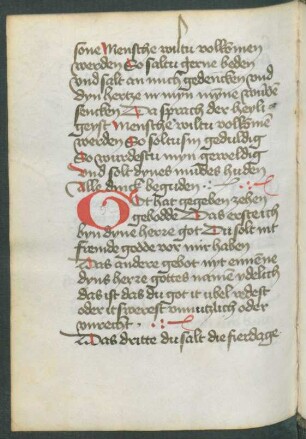 sone Mensche wiltu volkomen
werden So saltu gerne beden
vnd salt an mich gedencken vnd
dyn hertze in myn myne
sencken Da sprach der heyli
geist Mensche wiltu volkomē
werden So soltu sin geduldig
So wurdestu myn geweldig
Vnd solt dynes nydes huden
Alle dinck beguden
Got hat gegeben zehen
gebodde Das erste ich
byn dyne herre got Du solt nit
fremde godde vor mir haben
Das andere gebot nit enneme
dyns herre gottes namen ydelich
das ist das du got it ubel redest
oder it swerest vnnutzlich oder
vnrecht
Das dritte du salt die fierdage